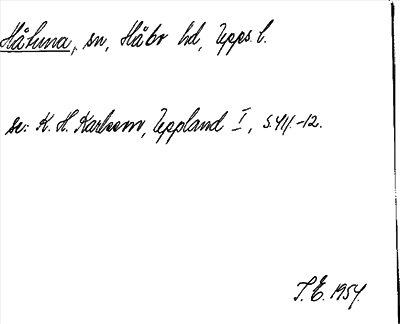 Håtuna, sn, Håbo hd, Upps. l.
se: K. H. Karlsson, Uppland I, s. 411-12.
T. E. 1954.